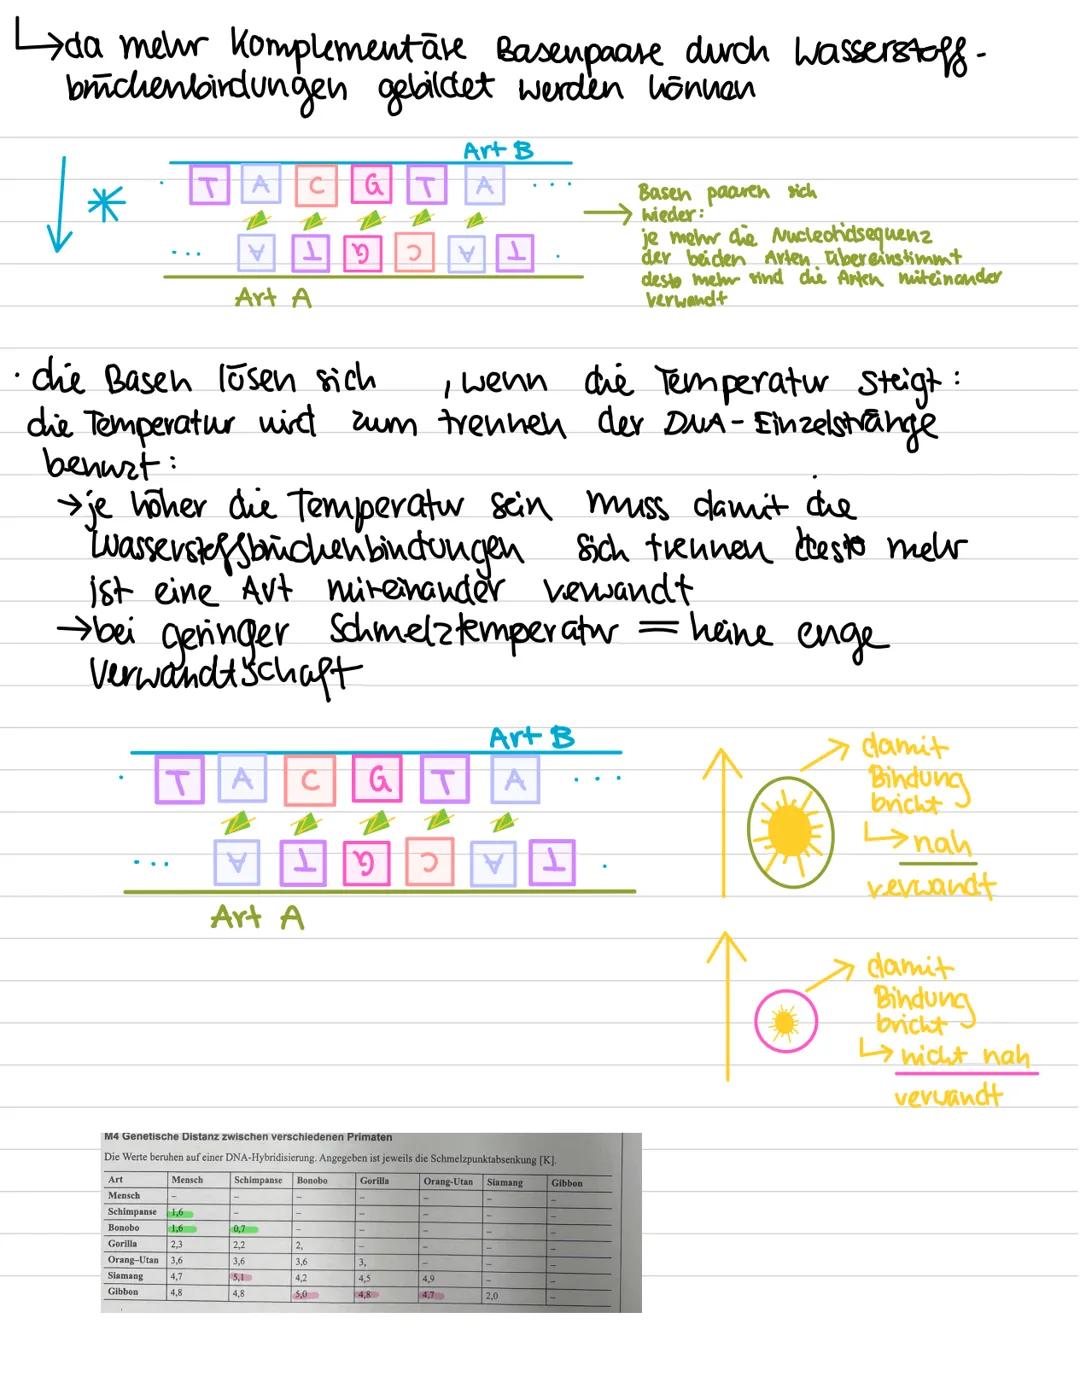 ↳da mehr Komplementäre Basenpaare durch Wasserstoff-
brückenbindungen gebildet werden können
Art B
T A C G T A ...
... A T G C A T .
Art A
Basen paaren sich
wieder:
je mehr die Nucleotidsequenz
der beiden Arten übereinstimmt
desto mehr sind die Arten miteinander
verwandt
· die Basen lösen sich , wenn die Temperatur steigt:
die Temperatur wird zum trennen der DNA-Einzelstränge
benutzt:
→je höher die Temperatur sein muss damit die
Wasserstoffbrückenbindungen sich trennen desto mehr
ist eine Art miteinander verwandt
→bei geringer Schmelztemperatur = keine enge
Verwandtschaft
Art B
T A C G T A ...
... A T G C A T .
Art A
damit
Bindung
bricht
↳ nah
verwandt
damit
Bindung
bricht
↳ nicht nah
verwandt
M4 Genetische Distanz zwischen verschiedenen Primaten
Die Werte beruhen auf einer DNA-Hybridisierung. Angegeben ist jeweils die Schmelzpunktabsenkung [K].
Art Mensch Schimpanse Bonobo Gorilla Orang-Utan Siamang Gibbon
Mensch – – – – – – –
Schimpanse 1,6 – – – – – –
Bonobo 1,6 0,7 – – – – –
Gorilla 2,3 2,2 2, – – – –
Orang–Utan 3,6 3,6 3,6 3, – – –
Siamang 4,7 5,1 4,2 4,5 4,9 – –
Gibbon 4,8 4,8 5,0 4,8 4,7 2,0 –